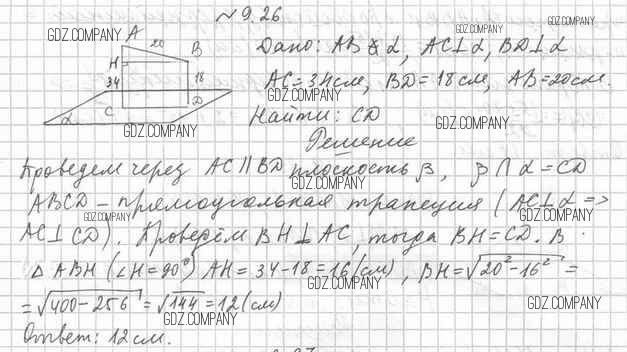 № 9.26
GDZ.COMPANY GDZ.COMPANY GDZ.COMPANY
A 20 B H 34 18 C D α
Дано: AB ⊄ α, AC⊥α, BD⊥α
AC = 34см, BD = 18см, AB = 20см.
GDZ.COMPANY
Найти: CD
GDZ.COMPANY GDZ.COMPANY
Решение
Проведем через AC ∥ BD плоскость β, β ∩ α = CD
GDZ.COMPANY
ABCD – прямоугольная трапеция (AC⊥α =>
GDZ.COMPANY GDZ.COMPANY
AC⊥CD). Проведём BH⊥AC, тогда BH = CD. В
Δ ABH (∠H = 90°) AH = 34-18 = 16 (см), BH = √20²-16² =
GDZ.COMPANY
= √400-256 = √144 = 12 (см)
GDZ.COMPANY GDZ.COMPANY
Ответ: 12 см.